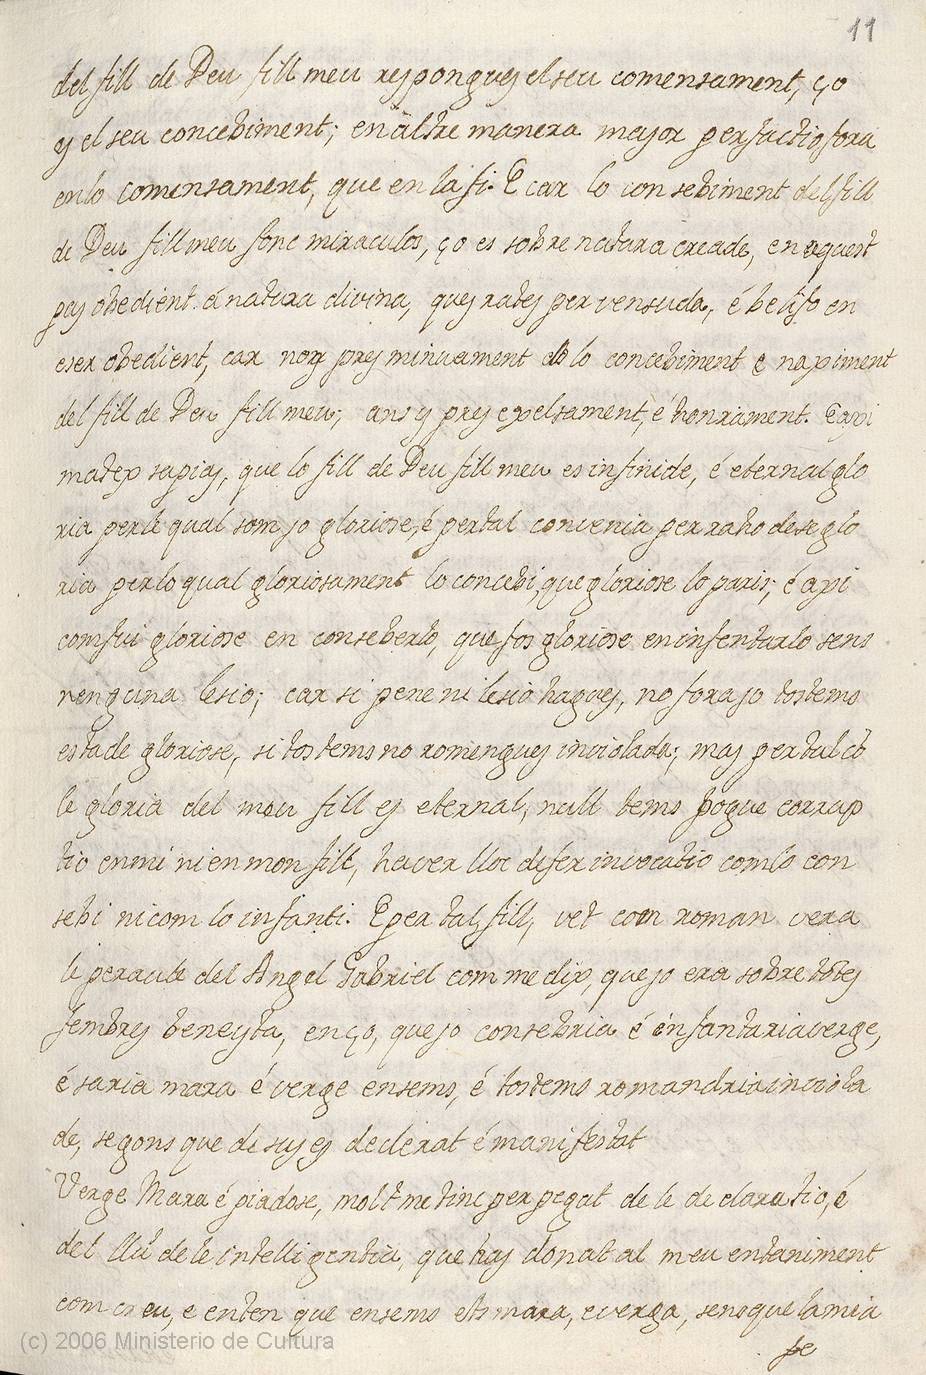 11
del fill de Deu fill meu respongues el seu comensament, ço
es el seu concebiment; en altre manera major perfactio fora
en lo comensament, que en la fi. E car lo consebiment del fill
de Deu fill meu fonc miraculos, ço es sobre natura creade, en aquest
pas obedient á natura divina, ques rates per vensuda, é be usto en
eser obedient, car nom pres minvament do lo concebiment e naximent
del fill de Deu fill meu; ans y pres expelsament, é honrament. E axi
matex sapias, que lo fill de Deu fill meu es infinide, é eternal glo
ria per le qual som jo gloriose, é per tal convenia per raho de se glo
ria per lo qual gloriosament lo concebi, que gloriose lo paris; é axi
com fui gloriose en conseberlo, que fos gloriose en infentarlo sens
nenguna lesio; car si pene ni lesio hagues, no fora jo tostems
estade gloriose, si tostems no romengues inviolada; mas per tal co
le gloria del meu fill es eternal, null tems pogue corrup
tio en mi ni en mon fill, haver lloc de fer invocatio com lo con
sebi ni com lo infanti. E per tal, fill, vet com roman vera
le peraule del Angel Gabriel com me dix, que jo era sobre totes
fembres beneyta, en ço, que jo consebria é infantaria verge,
é saria mara é verge ensems, é tostems romandria inviola
de, segons que de sus es declerat é manifestat
Verge Mara é piadose, molt me tinc per pegat de le declaratio, é
del llú de le intelligentia, que has donat al meu enteniment
com creu, e enten que ensems ets mara, e verga, sens que la mia
fe
(c) 2006 Ministerio de Cultura